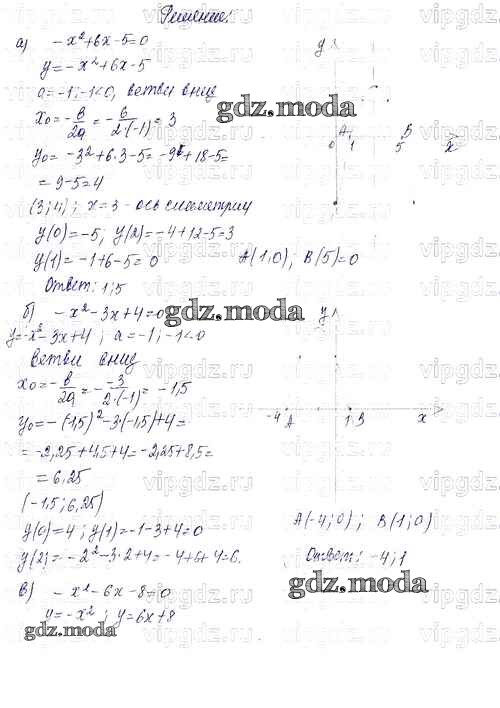 Решение:
а) -x²+6x-5=0
y=-x²+6x-5
a=-1; -1<0, ветви вниз
x₀=-в/2a=-6/2·(-1)=3
y₀=-3²+6·3-5=-9+18-5=
=9-5=4
(3;4); x=3-ось симметрии
y(0)=-5; y(2)=-4+12-5=3
y(1)=-1+6-5=0
A(1;0); B(5)=0
Ответ: 1;5
y
A
B
0
1
5
x
б) -x²-3x+4=0
y=-x²-3x+4; a=-1; -1<0
Ветви вниз
x₀=-в/2a=-(-3)/2·(-1)=-1,5
y₀=-(-1,5)²-3·(-1,5)+4=
=-2,25+4,5+4=-2,25+8,5=
=6,25
(-1,5; 6,25)
y(0)=4; y(1)=-1-3+4=0
y(2)=-2²-3·2+4=-4+6+4=6.
y
-4
A
1
B
x
A(-4;0); B(1;0)
Ответ: -4;1
в) -x²-6x-8=0
y=-x²; y=6x+8
gdz.moda
gdz.moda
gdz.moda
gdz.moda
vipgdz.ru